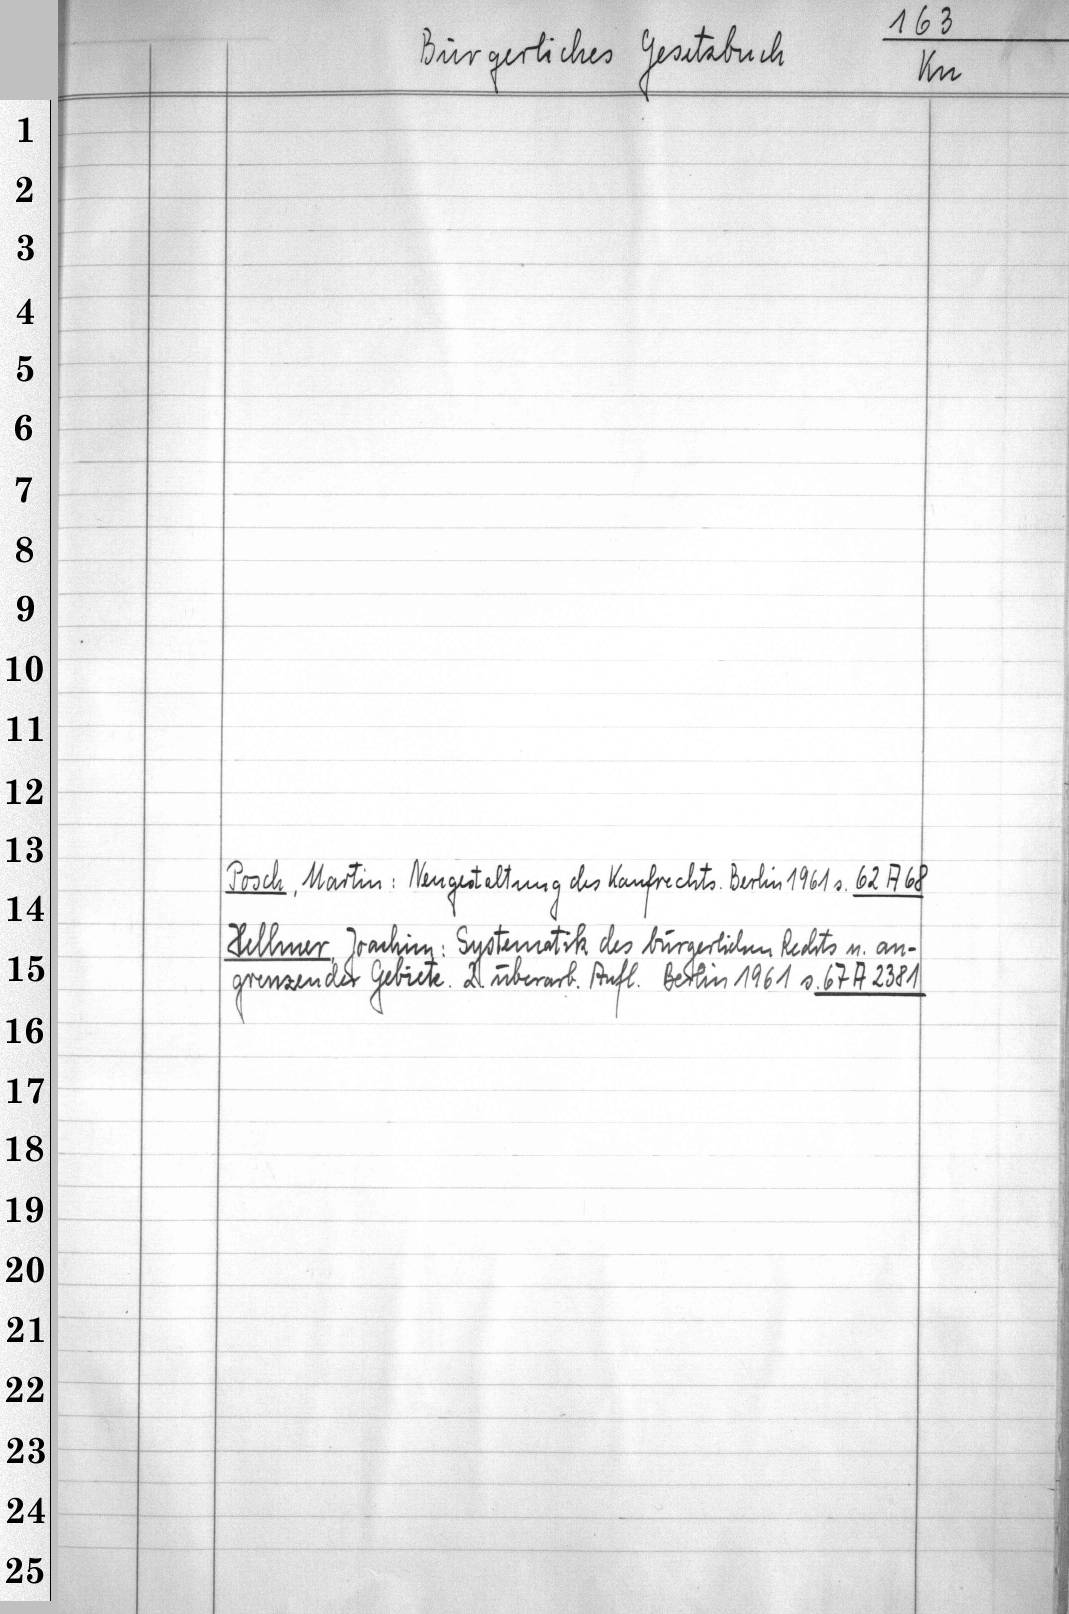 163
Bürgerliches Gesetzbuch
Kn
1
2
3
4
5
6
7
8
9
10
11
12
13
Posch, Martin: Neugestaltung des Kaufrechts. Berlin 1961 s. 62 A 68
14
Hellmer, Joachim: Systematik des bürgerlichen Rechts u. an-
15
grenzender Gebiete. 2. überarb. Aufl. Berlin 1961 s. 67 A 2381
16
17
18
19
20
21
22
23
24
25